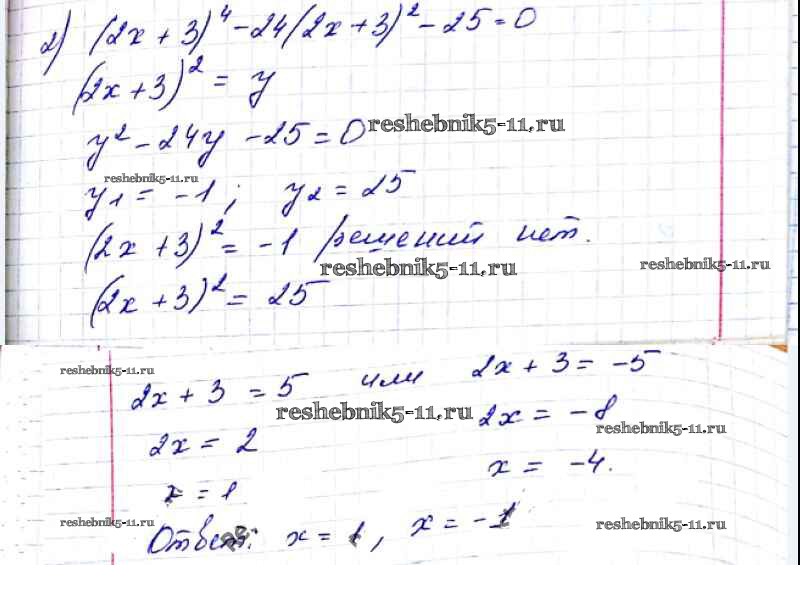 2) (2x + 3)^4 - 24(2x + 3)^2 - 25 = 0
(2x + 3)^2 = y
y^2 - 24y - 25 = 0
reshebnik5-11.ru
reshebnik5-11.ru
y1 = -1 ; y2 = 25
(2x + 3)^2 = -1 решений нет.
reshebnik5-11.ru
reshebnik5-11.ru
(2x + 3)^2 = 25
reshebnik5-11.ru
2x + 3 = 5 или 2x + 3 = -5
reshebnik5-11.ru
2x = 2 2x = -8
reshebnik5-11.ru
x = 1 x = -4.
reshebnik5-11.ru
reshebnik5-11.ru
Ответ: x = 1, x = -1